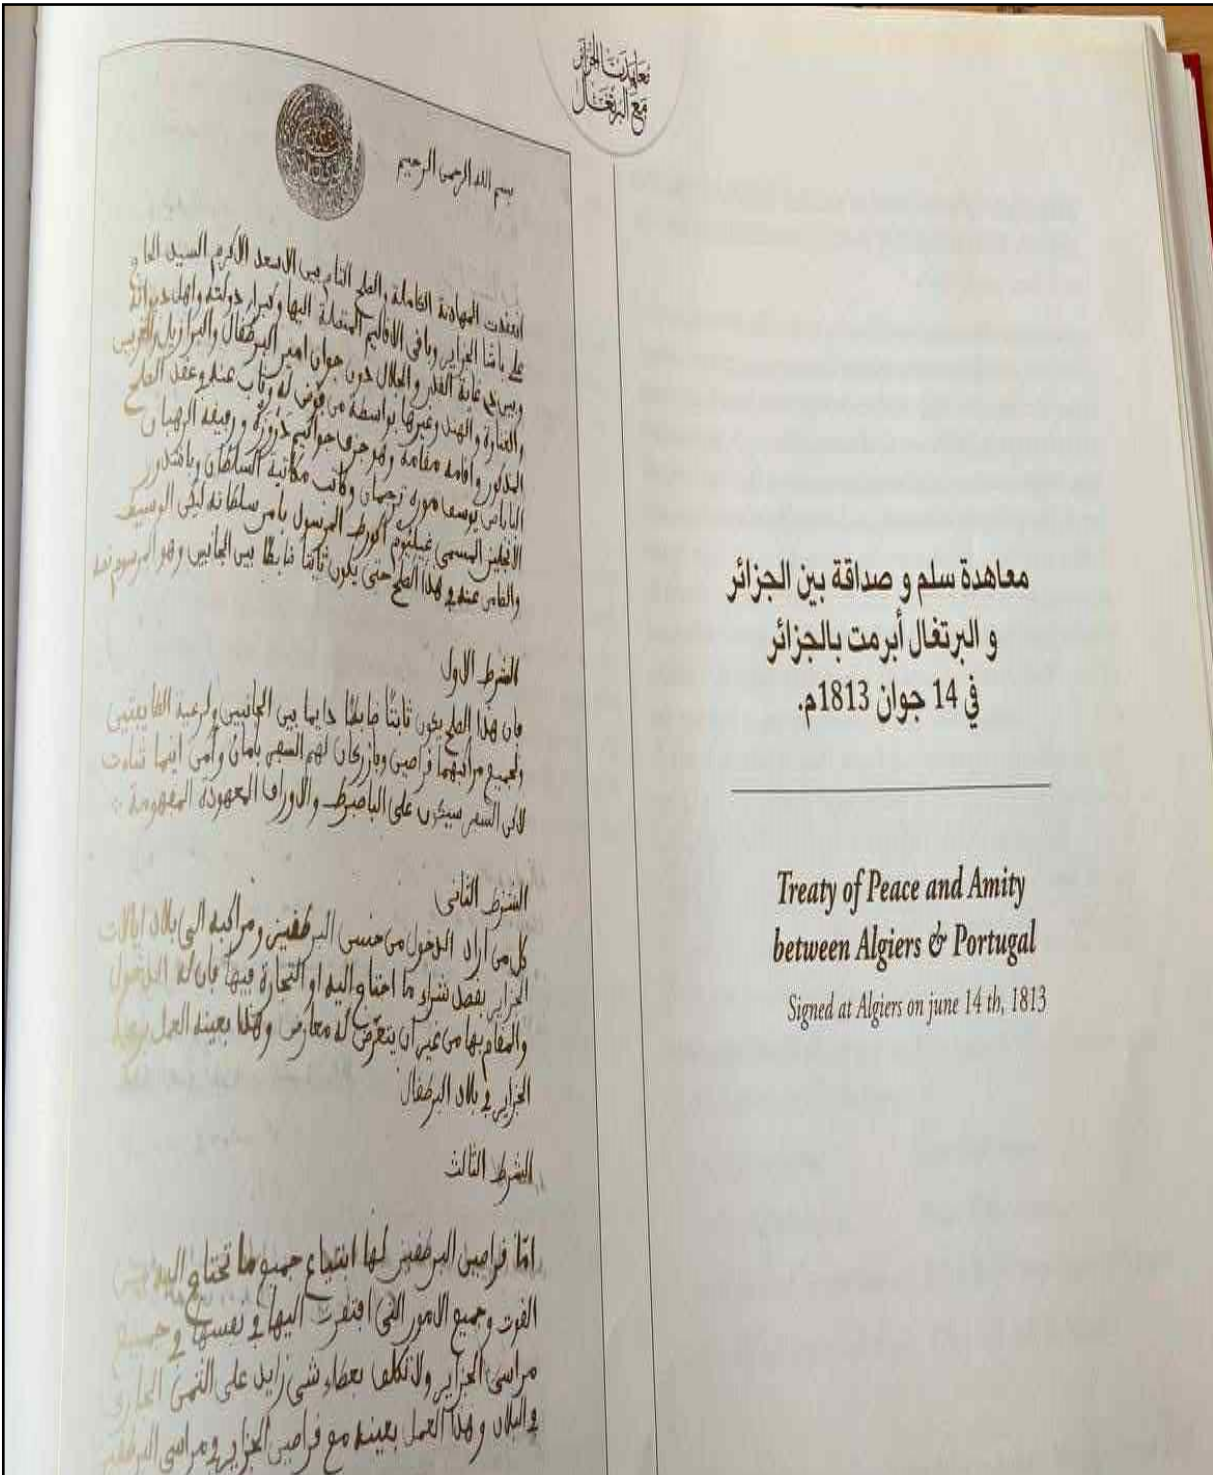 معاهدتا الجزائر
مع البرتغال
معاهدة سلم و صداقة بين الجزائر
و البرتغال أبرمت بالجزائر
في 14 جوان 1813م.
Treaty of Peace and Amity
between Algiers & Portugal
Signed at Algiers on june 14 th, 1813
بسم الله الرحمن الرحيم
انعقدت المهادنة الكاملة والصلح التام بين الاسعد الاكرم السيد الحاج
علي باشا الجزاير وباقي الاقاليم المتصلة اليها وكبراء دولته واهل ديوانه
وبين غاية القدر والجلال دون جوان امير البرطقال والبرازيل
والهند وغيرها بواسطة من فوض له وناب عنه وعقد الصلح
المذكور واقامه مقامه وهو جواكيم ورفيقه الرهبان
يوسف موره ترجمان وكاتب السلطان
الانجليز المسمى المرسول بامر سلطانه ليكن الوسيط
والضامن عنه في هذا الصلح حتى يكون ثابتا ضابطا بين الجانبين وهو المرسوم
الشرط الاول
فان هذا الصلح يكون ثابتا ضابطا دايما بين الجانبين ولرعية الطايفتين
ولجميع مراكبهما قراصين وبازركان لهم السفر بامان وامن اينما شاءت
لاكن السفر سيكون على الباصبرط والاوراق المعهودة المفهومة
الشرط الثاني
كل من اراد الدخول من جنس البرطقيز ومراكبه الى بلاد ايالات
الجزاير بقصد شراء ما احتاج اليه او التجارة فيها فان له الدخول
والمقام بها من غير ان يتعرض له معارض وهكذا بعينه العمل برعية
الجزاير في بلاد البرطقال
الشرط الثالث
امّا قراصين البرطقيز لها ابتياع جميع ما تحتاج اليه من
القوت وجميع الامور التي افتقرت اليها في نفسها وجميع
مراسي الجزاير ولا تكلف بعطاء شي زايد على الثمن الجاري
في البلاد وهذا العمل بعينه مع قراصين الجزاير في مراسي البرطقيز